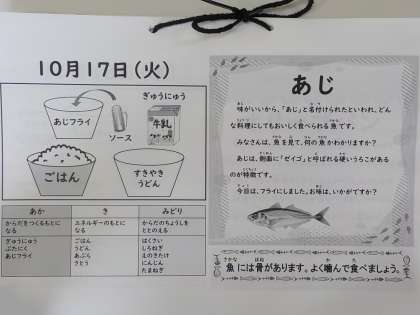 10月17日(火)
ぎゅうにゅう
あじフライ
ソース
牛乳
ごはん
すきやき
うどん
あか
き
みどり
からだをつくるもとに
なる
エネルギーのもとに
なる
からだのちょうしを
ととのえる
ぎゅうにゅう
ぶたにく
あじフライ
ごはん
うどん
あぶら
さとう
はくさい
しろねぎ
えのきたけ
にんじん
たまねぎ
あじ
味がいいから、「あじ」と名付けられたといわれ、どん
な料理にしてもおいしく食べられる魚です。
みなさんは、魚を見て、何の魚かわかりますか?
あじは、側面に「ゼイゴ」と呼ばれる硬いうろこがある
のが特徴です。
今日は、フライにしました。お味は、いかがですか?
魚には骨があります。よく噛んで食べましょう。